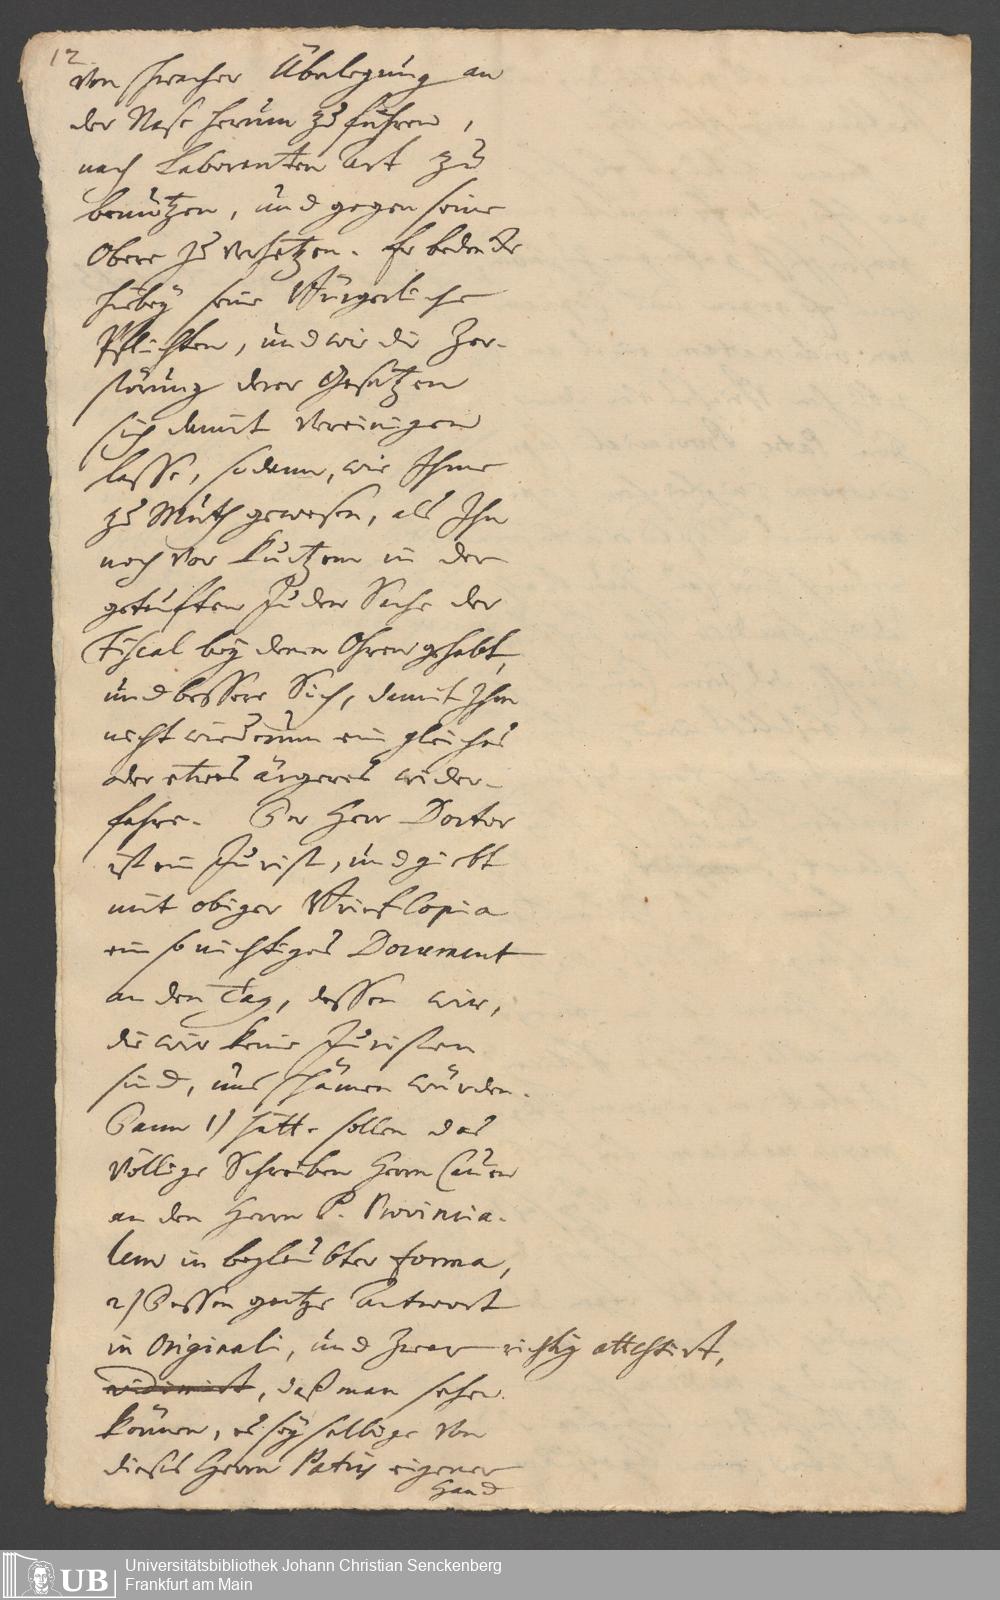 12
von schwacher Überlegung an
der Nase herum zu führen,
nach Laboranten Art zu
benützen, und gegen seine
Obere zu verhetzen. Er bedencke
hiebey seine Bürgerliche
Pflichten, und wie die Zer-
störung derer Gesätzen
sich damit vereinigen
lasse, sodann, wie Ihme
zu Muth gewesen, als Ihn
noch vor kurtzem in der
getauften Juden Sache der
Fiscal bey denen Ohren gehabt,
und bessere Sich, damit Ihm
nicht wiederum ein gleiches
oder etwas ärgeres wider-
fahre. Der Herr Doctor
ist ein Jurist, und giebt
mit obiger Brief Copia
ein so nichtiges Document
an den Tag, dessen wir,
die wir keine Juristen
sind, uns schämen würden.
Dann 1) hätte sollen das
völlige Schreiben Herrn
an den Herrn P. Provincia-
lem in beglaubter forma,
2) Dessen gantze Antwort
in Originali, und zwar richtig attestirt,
vidimirt, daß man sehen
können, es sey selbige von
dieses Herrn Patris eigener
Hand
UB
Universitätsbibliothek Johann Christian Senckenberg
Frankfurt am Main